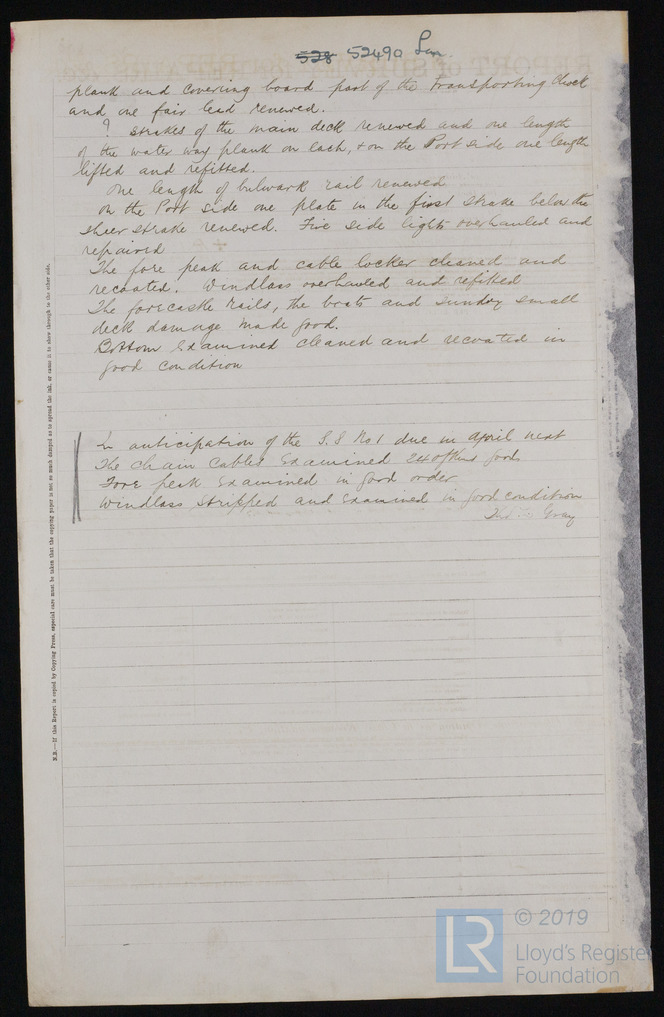 528 52490 Lon.
plank and covering board part of the Transporting Chock
and one fair lead renewed.
9 strakes of the main deck renewed and one length
of the water way plank on each, & on the Port side one length
lifted and refitted.
One length of bulwark rail renewed
On the Port side one plate in the first strake below the
sheer strake renewed. Five side lights overhauled and
repaired
The fore peak and cable locker cleaned and
recoated. Windlass overhauled and refitted
The forecastle rails, the boats and sundry small
deck damage made good.
Bottom examined cleaned and recoated in
good condition
In anticipation of the S.S No 1 due in April next
The chain cables examined good
Fore peak examined in good order
Windlass stripped and examined in good condition
Gray
N.B.—If this Report is copied by Copying Press, especial care must be taken that the copying paper is not so much damped as to spread the ink, or cause it to show through to the other side.
LR © 2019
Lloyd's Register
Foundation